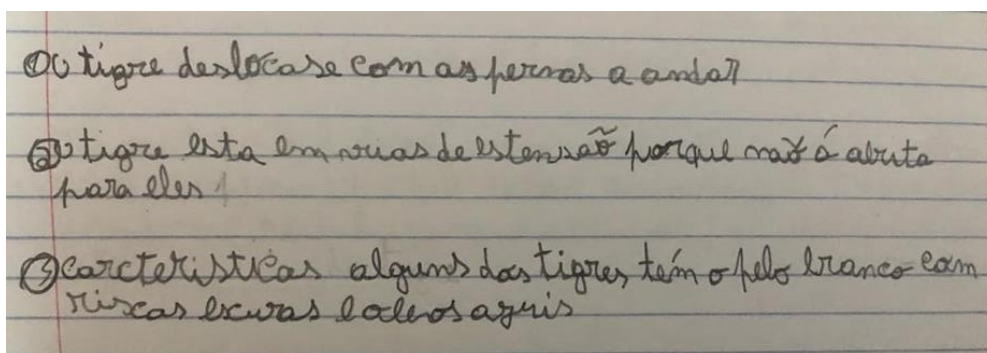 ① O tigre deslocase com as pernas a andar
② O tigre esta em vias de estensão porque não á abita
para eles
③ carcteristicas alguns dos tigres têm o pelo branco com
riscas escuras e olhos azuis